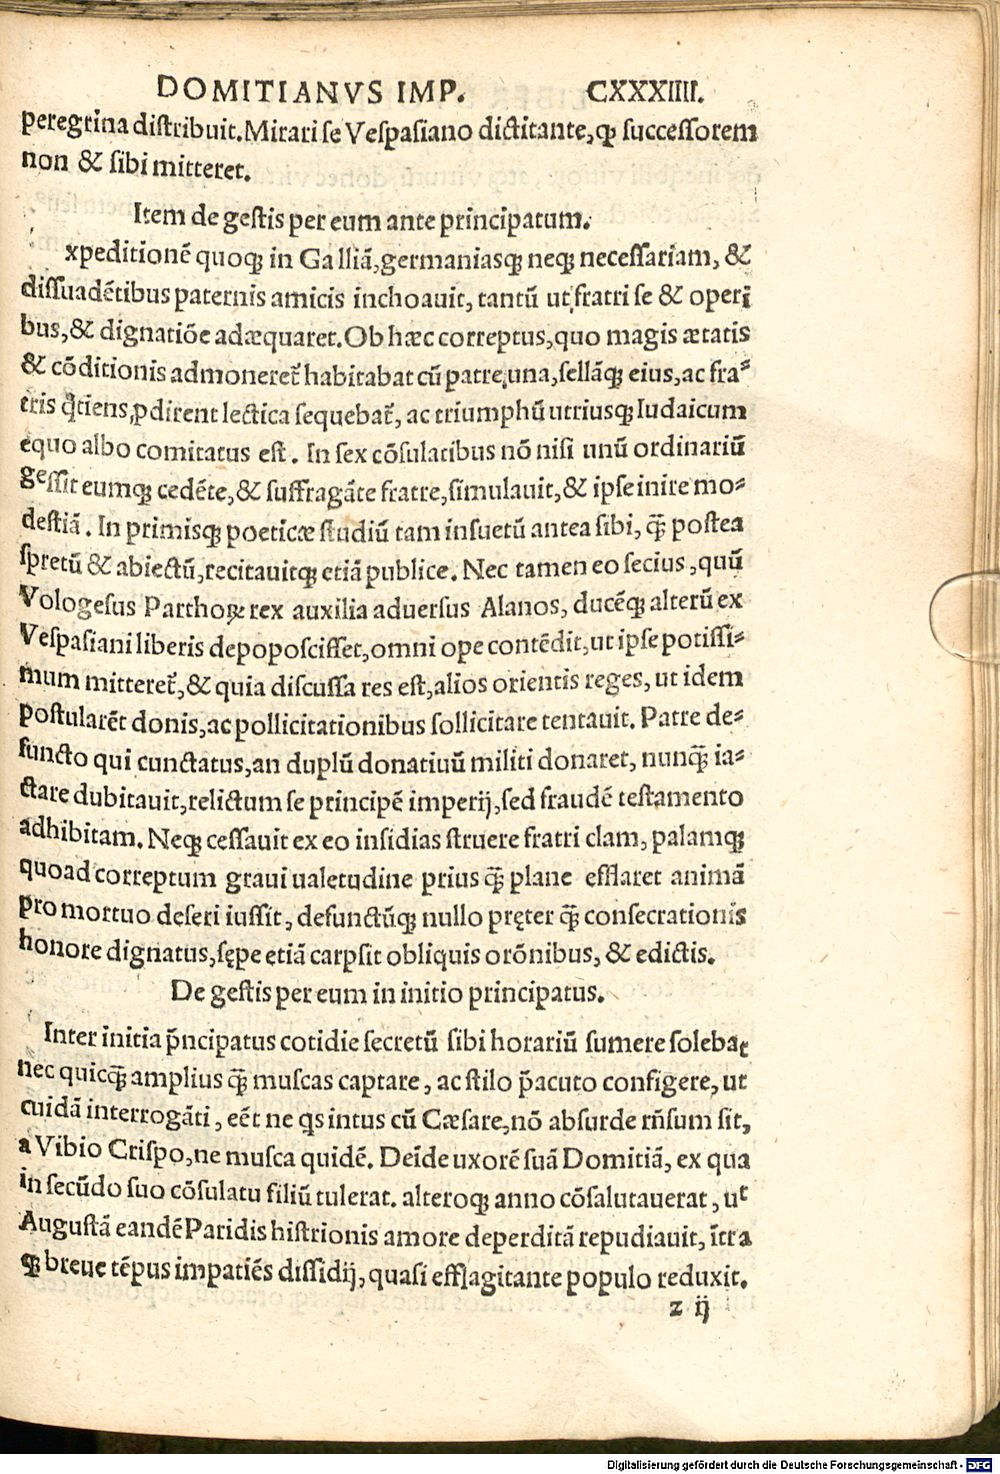 DOMITIANVS IMP. CXXXIIII.
peregrina distribuit. Mirari se Vespasiano dictitante, ꝙ successorem
non & sibi mitteret.
Item de gestis per eum ante principatum.
xpeditionē quoqꝫ in Galliā, germaniasqꝫ neqꝫ necessariam, &
dissuadētibus paternis amicis inchoauit, tantū ut fratri se & operi
bus, & dignatiōe adæquaret. Ob hæc correptus, quo magis ætatis
& cōditionis admoneret᷑ habitabat cū patre una, sellāqꝫ eius, ac fra⸗
tris q̇tiens ꝓdirent lectica sequebat᷑, ac triumphū utriusqꝫ Iudaicum
equo albo comitatus est. In sex cōsulatibus nō nisi unū ordinariū
gessit eumqꝫ cedēte, & suffragāte fratre, simulauit, & ipse inire mo⸗
destiā. In primisqꝫ poeticæ studiū tam insuetū antea sibi, q̄ꝫ postea
spretū & abiectū, recitauitqꝫ etiā publice. Nec tamen eo secius, quū
Vologesus Parthoꝝ rex auxilia aduersus Alanos, ducēqꝫ alterū ex
Vespasiani liberis depoposcisset, omni ope contēdit, ut ipse potissi⸗
mum mitteret᷑, & quia discussa res est, alios orientis reges, ut idem
postularēt donis, ac pollicitationibus sollicitare tentauit. Patre de⸗
functo qui cunctatus, an duplū donatiuū militi donaret, nunq̄ꝫ ia⸗
ctare dubitauit, relictum se principē imperij, sed fraudē testamento
adhibitam. Neqꝫ cessauit ex eo insidias struere fratri clam, palamqꝫ
quoad correptum graui ualetudine prius q̄ꝫ plane efflaret animā
pro mortuo deseri iussit, defunctūqꝫ nullo pręter q̄ꝫ consecrationis
honore dignatus, sępe etiā carpsit obliquis orōnibus, & edictis.
De gestis per eum in initio principatus.
Inter initia p̄ncipatus cotidie secretū sibi horariū sumere solebat
nec quicq̄ꝫ amplius q̄ꝫ muscas captare, ac stilo p̄acuto configere, ut
cuidā interrogāti, eēt ne qs intus cū Cæsare, nō absurde rn̄sum sit,
a Vibio Crispo, ne musca quidē. Deīde uxorē suā Domitiā, ex qua
in secūdo suo cōsulatu filiū tulerat. alteroqꝫ anno cōsalutauerat, ut
Augustā eandē Paridis histrionis amore deperditā repudiauit, ītra
qꝫ breue tēpus impatiēs dissidij, quasi efflagitante populo reduxit.
z ij
Digitalisierung gefördert durch die Deutsche Forschungsgemeinschaft - DFG